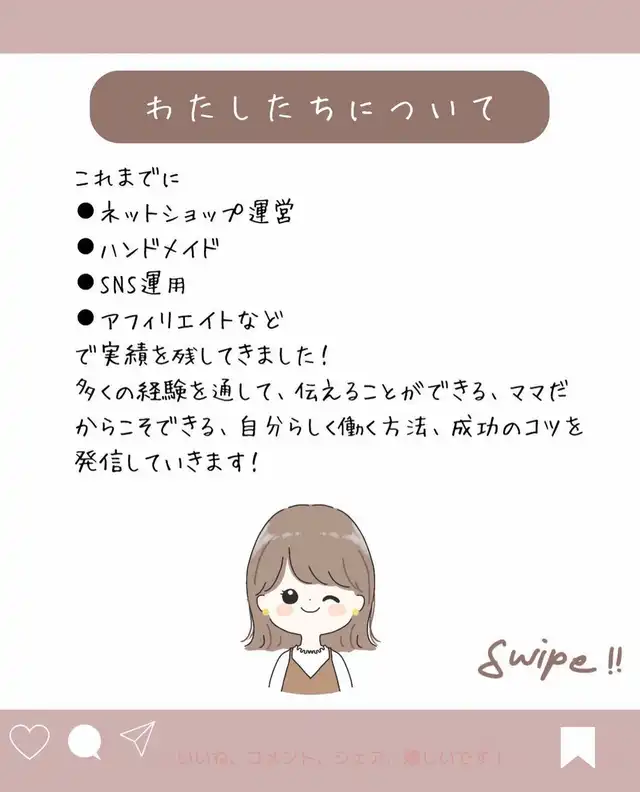 わたしたちについて
これまでに
●ネットショップ運営
●ハンドメイド
●SNS運用
●アフィリエイトなど
で実績を残してきました！
多くの経験を通して、伝えることができる、ママだ
からこそできる、自分らしく働く方法、成功のコツを
発信していきます！
Swipe!!
いいね、コメント、シェア、嬉しいです！